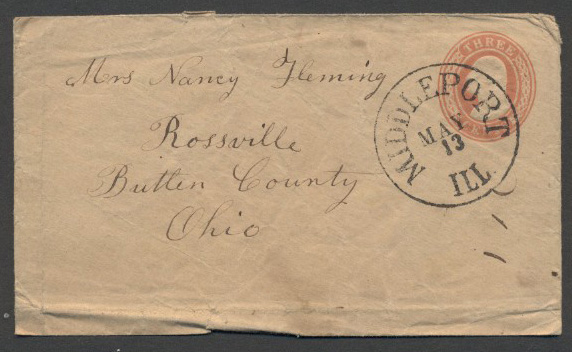 THREE
Mrs Nancy Fleming
MIDDLEPORT
MAY
13
ILL.
Rossville
Butten County
Ohio